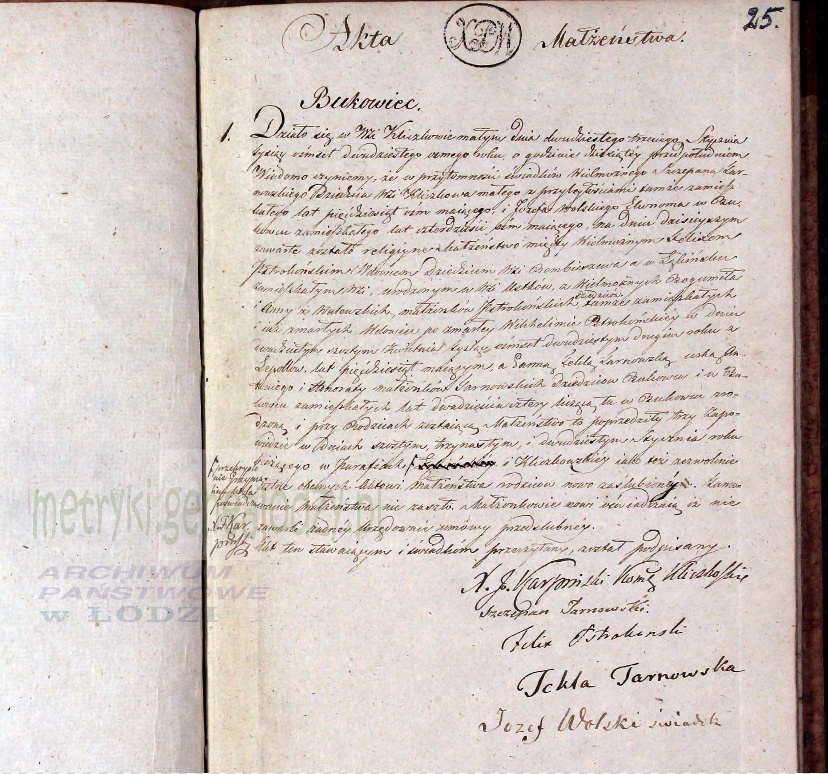 25.
Akta Małżeństwa.
Bukowiec.
1. Działo się w Wsi Kliczkowie małym dnia dwudziestego trzeciego Stycznia
tysiąc ośmset dwudziestego osmego roku, o godzinie dziesiątey przed południem
Wiadomo czyniemy, że w przytomności świadków Wielmożnego Szczepana Tar-
nowskiego Dziedzica Wsi Kliczkowa małego z przyległościami tamże zamiesz-
kałego lat pięćdziesiąt osm maiącego, i Józefa Wolskiego Ekonoma w
zamieszkałego lat czterdzieści maiącego, na dniu dzisieyszym
zawarte zostało religiyne Małżeństwo między Wielmożnym Felixem
Pstrokońskim Wdowcem Dziedzicem Wsi a w
zamieszkałym Wsi, urodzonym w Wsi z Wielmożnych Bogumiła
i Anny z małżonków Pstrokońskich, tamże zamieszkałych
i iuż zmarłych Wdowcem po zmarłey Wilhelminie Pstrokońskiey w dniu
dwudziestym szostym Kwietnia tysiąc ośmset dwudziestym roku z
lat pięćdziesiąt maiącym, a Panną Teklą Tarnowską córką An-
toniego i Honoraty małżonków Tarnowskich Dziedziców i w
zamieszkałych lat dwadzieścia cztery liczącą tu w uro-
dzoną i przy Rodzicach zostaiącą. Małżeństwo to poprzedziły trzy Zapo-
wiedzie w Dniach szostym, trzynastym, i dwudziestym Stycznia roku
bieżącego w Parafiach i Kliczkowskiey iako też zezwolenie
obecnych Aktowi małżeństwa rodziców nowo zaślubioney. Tamo-
wanie Małżeństwa nie zaszło. Małżonkowie nowi oświadczaią iż nie
zawarli żadney urzędownie umowy przedślubney.
Akt ten stawaiącym i świadkom przeczytany, został podpisany.
X. J. Karpiński Kliczkoski
Szczepan Tarnowski.
Felix Pstrokonski
Tekla Tarnowska
Jozef Wolski swiadek
X. Kar
piński
metryki.gen
ARCHIWUM
PAŃSTWOWE
w ŁODZI